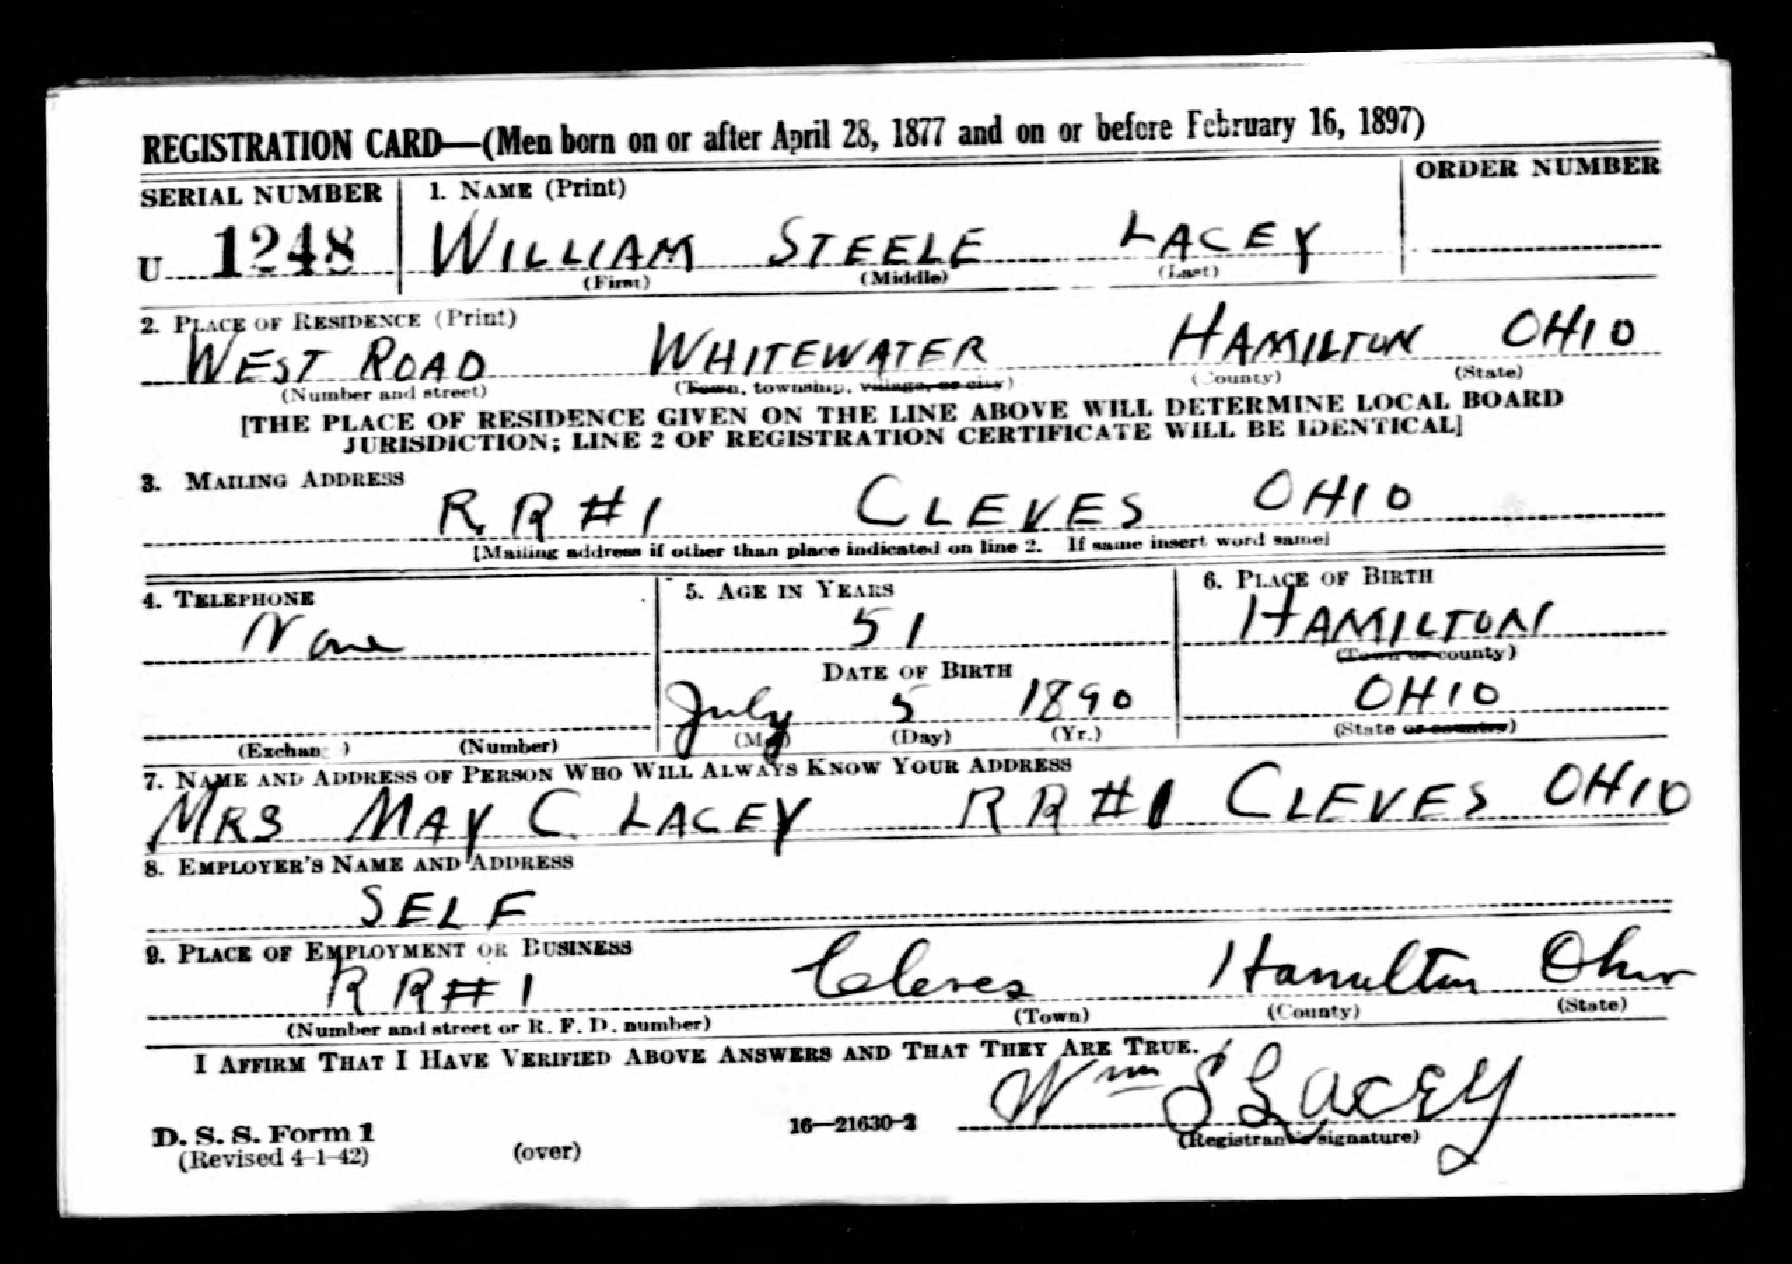 REGISTRATION CARD—(Men born on or after April 28, 1877 and on or before February 16, 1897)
SERIAL NUMBER 1. NAME (Print) ORDER NUMBER
U 1248 WILLIAM STEELE LACEY
(First) (Middle) (Last)
2. PLACE OF RESIDENCE (Print)
WEST ROAD WHITEWATER HAMILTON OHIO
(Number and street) (Town, township, village, or city) (County) (State)
[THE PLACE OF RESIDENCE GIVEN ON THE LINE ABOVE WILL DETERMINE LOCAL BOARD
JURISDICTION; LINE 2 OF REGISTRATION CERTIFICATE WILL BE IDENTICAL]
3. MAILING ADDRESS
R R #1 CLEVES OHIO
[Mailing address if other than place indicated on line 2. If same insert word same]
4. TELEPHONE 5. AGE IN YEARS 6. PLACE OF BIRTH
None 51 HAMILTON
(Town or county)
DATE OF BIRTH
July 5 1890 OHIO
(Exchange) (Number) (Mo.) (Day) (Yr.) (State or country)
7. NAME AND ADDRESS OF PERSON WHO WILL ALWAYS KNOW YOUR ADDRESS
MRS MAY C. LACEY R R #1 CLEVES OHIO
8. EMPLOYER'S NAME AND ADDRESS
SELF
9. PLACE OF EMPLOYMENT OR BUSINESS
R R #1 Cleves Hamilton Ohio
(Number and street or R. F. D. number) (Town) (County) (State)
I AFFIRM THAT I HAVE VERIFIED ABOVE ANSWERS AND THAT THEY ARE TRUE.
Wm S Lacey
D. S. S. Form 1 16—21630-2 (Registrant's signature)
(Revised 4-1-42) (over)